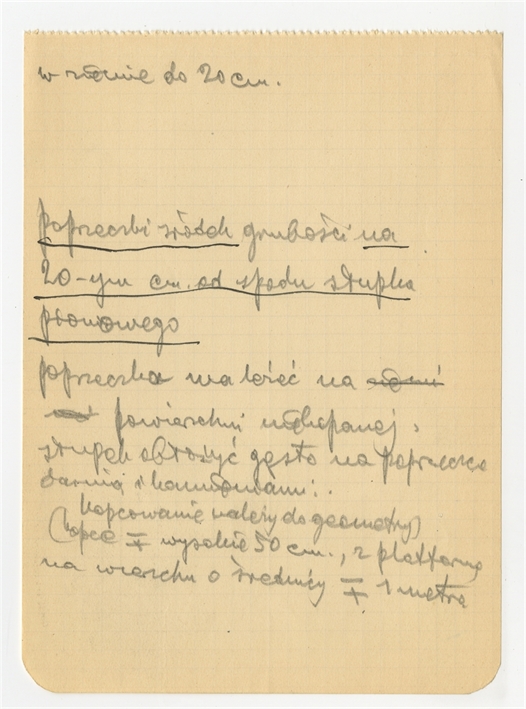 w ziemię do 20 cm.
poprzeczki środek grubości na
20-ym cm. od spodu słupka
pionowego
poprzeczka ma leżeć na
powierzchni
słupek obłożyć gęsto na poprzeczce
darnią i kamieniami.
Kopcowanie należy do geometry
(kopce ∓ wysokie 50 cm., z platformą
na wierzchu o średnicy ∓ 1 metra